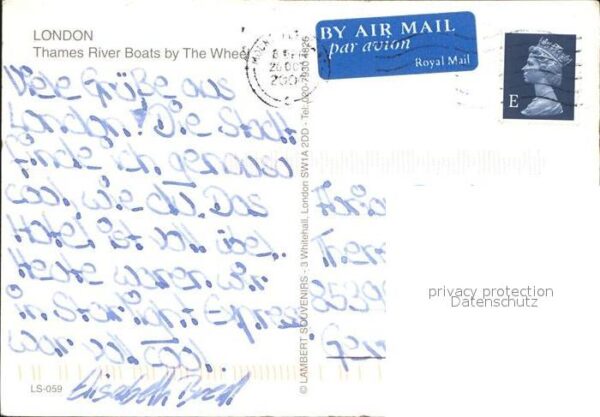 LONDON
Thames River Boats by The Wheel
BY AIR MAIL
par avion
Royal Mail
E
Viele Grüße aus
London! Die Stadt
finde ich genauso
cool, wie du. Das
Hotel ist voll übel.
Heute waren wir
in Starlight Express
war voll cool.
Elisabeth
LS-059
© LAMBERT SOUVENIRS - 3 Whitehall, London SW1A 2DD - Tel: 020-7930 4826
Ther
8539
Ger
privacy protection
Datenschutz